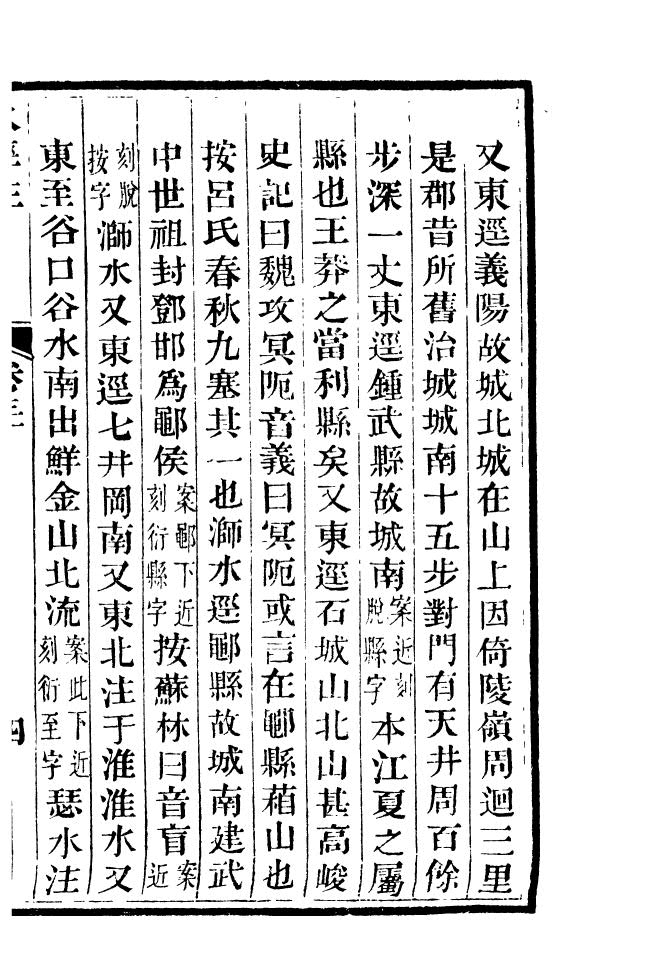 又東逕義陽故城北城在山上因倚陵嶺周迴三里
是郡昔所舊治城城南十五步對門有天井周百餘
步深一丈東逕鍾武縣故城南案近刻脫縣字本江夏之屬
縣也王莽之當利縣矣又東逕石城山北山甚高峻
史記曰魏攻冥阨音義曰冥阨或言在鄳縣葙山也
按呂氏春秋九塞其一也溮水逕鄳縣故城南建武
中世祖封鄧邯爲鄳侯案鄳下近刻衍縣字按蘇林曰音盲案近
刻脫按字溮水又東逕七井岡南又東北注于淮淮水又
東至谷口谷水南出鮮金山北流案此下近刻衍至字瑟水注